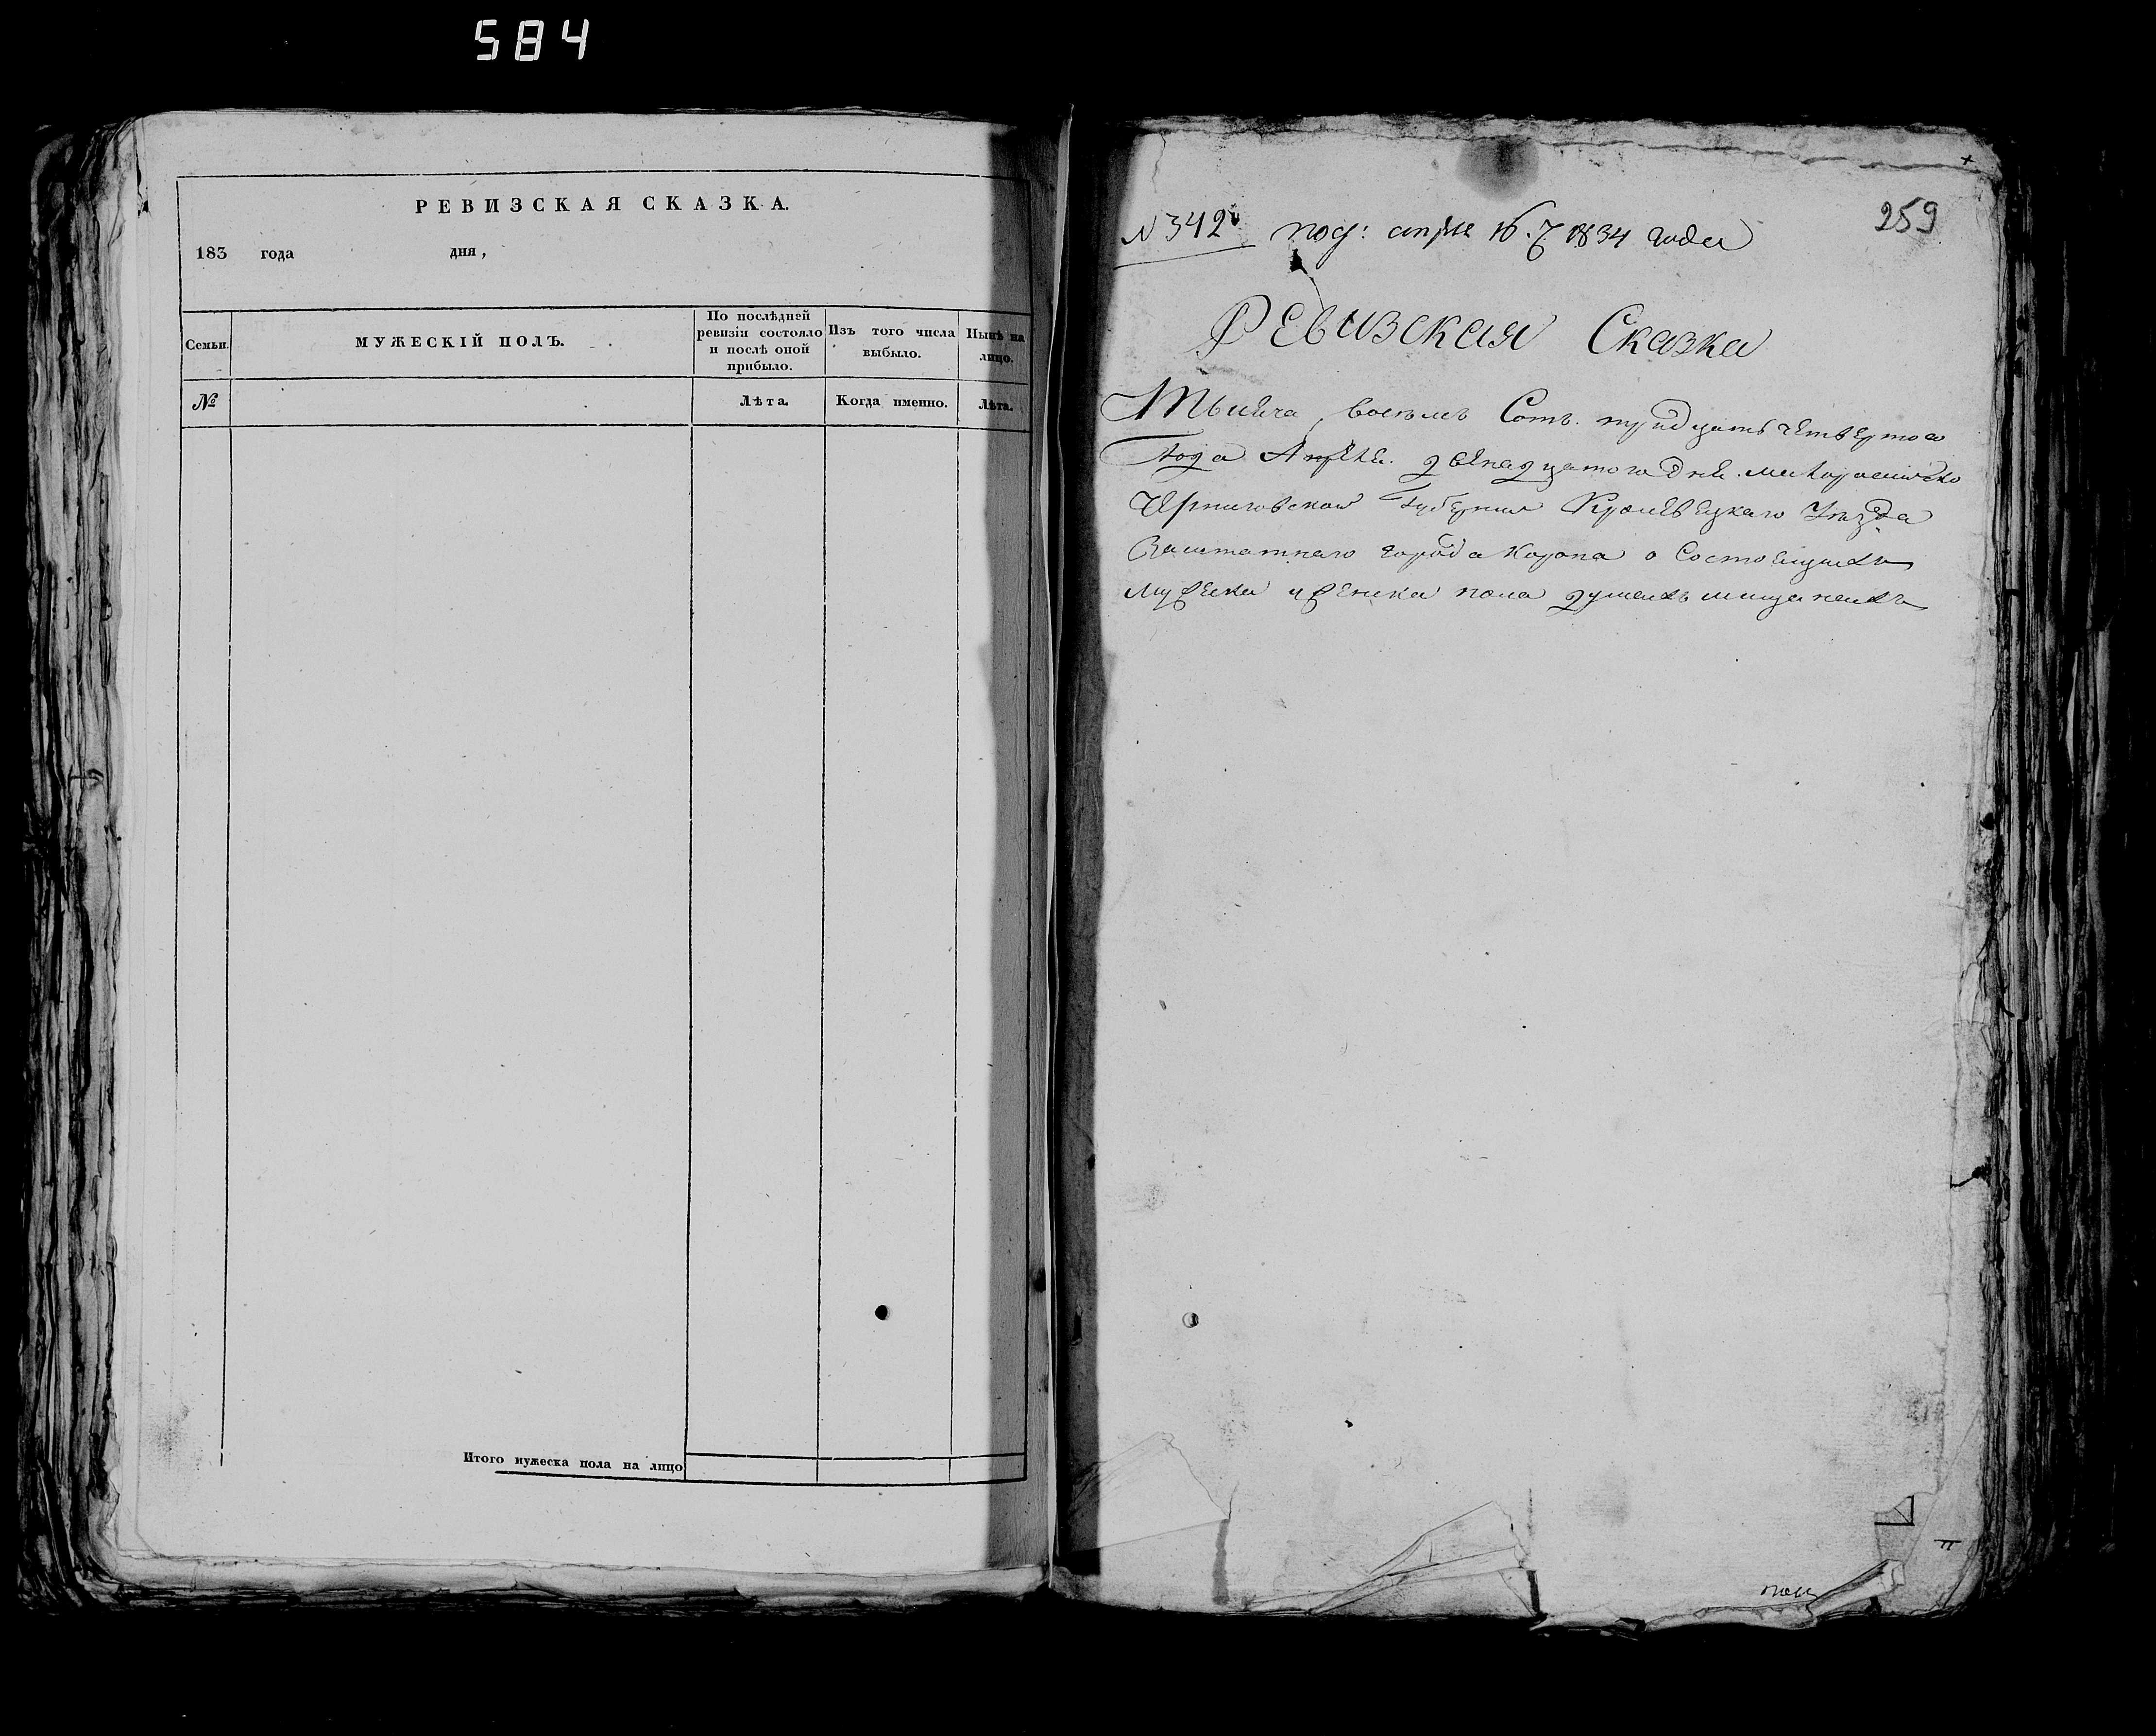 584
РЕВИЗСКАЯ СКАЗКА.
183 года дня,
Семьи. МУЖЕСКІЙ ПОЛЪ. По послѣдней ревизіи состояло и послѣ оной прибыло. Изъ того числа выбыло. Нынѣ на лицо.
№ Лѣта. Когда именно. Лѣта.
Итого мужеска пола на лицо
259
N 342й под: апреля 16. 1834 года
Ревизская Сказка
Тысяча восемъ Сотъ тридцать четвертого
Года Апреля двенадцатого дня малороссійско
Черниговской Губернии Кролевецкаго Уезда
Заштатнаго города Коропа о Состоящихъ
мужеска и женска пола душахъ мищанахъ